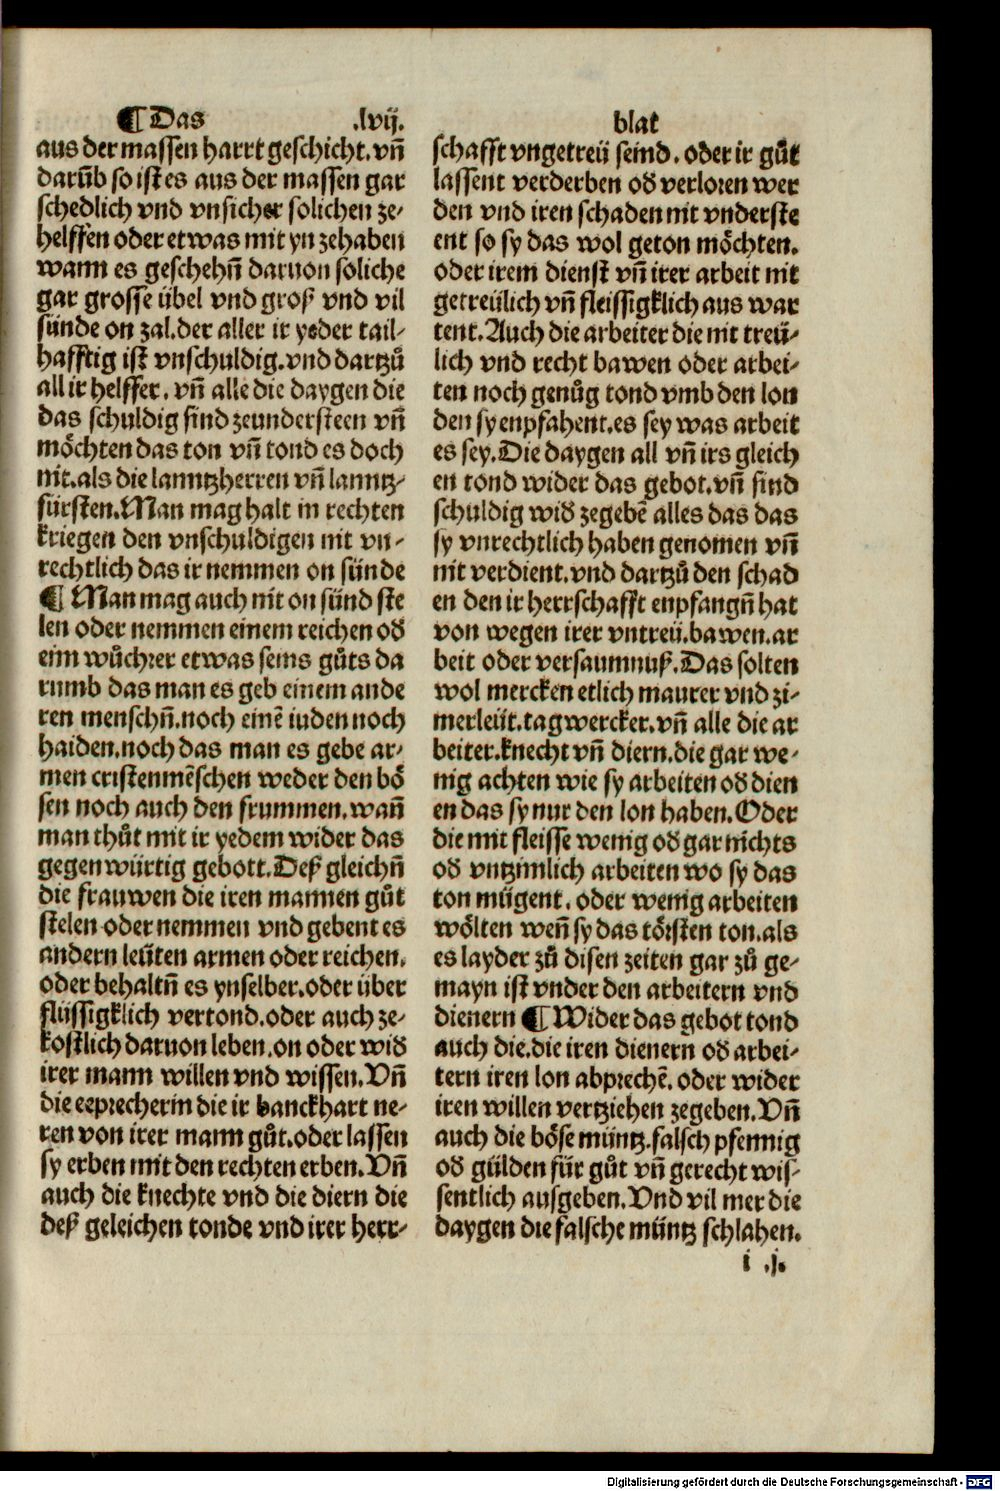 ¶ Das .lvij. blat
aus der massen harrt geschicht. vn̄
darūb so ist es aus der massen gar
schedlich vnd vnsicher solichen ze-
helffen oder etwas mit yn zehaben
wann es geschehn̄ daruon soliche
gar grosse übel vnd groß vnd vil
sünde on zal. der aller ir yeder tail-
hafftig ist vnschuldig. vnd dartzů
all ir helffer. vn̄ alle die daygen die
das schuldig sind zeundersteen vn̄
möchten das ton vn̄ tond es doch
nit. als die lanntzherren vn̄ lanntz-
fürsten. Man mag halt in rechten
kriegen den vnschuldigen nit vn-
rechtlich das ir nemmen on sünde
¶ Man mag auch nit on sünd ste
len oder nemmen einem reichen od
eim wůchrer etwas seins gůts da
rumb das man es geb einem ande
ren menschn̄. noch einē iuden noch
haiden. noch das man es gebe ar-
men cristenmēschen weder den bö
sen noch auch den frummen. wan̄
man thůt mit ir yedem wider das
gegenwürtig gebott. Deß gleichn̄
die frauwen die iren mannen gůt
stelen oder nemmen vnd gebent es
andern leüten armen oder reichen.
oder behaltn̄ es ynselber. oder über
flüssigklich vertond. oder auch ze-
kostlich daruon leben. on oder wid
irer mann willen vnd wissen. Vn̄
die eeprecherin die ir banckhart ne-
ren von irer mann gůt. oder lassen
sy erben mit den rechten erben. Vn̄
auch die knechte vnd die diern die
deß geleichen tonde vnd irer herr-
schafft vngetreü seind. oder ir gůt
lassent verderben od verloren wer
den vnd iren schaden nit vnderste
ent so sy das wol geton möchten.
oder irem dienst vn̄ irer arbeit nit
getreülich vn̄ fleissigklich aus war
tent. Auch die arbeiter die nit treü-
lich vnd recht bawen oder arbei-
ten noch genůg tond vmb den lon
den sy enpfahent. es sey was arbeit
es sey. Die daygen all vn̄ irs gleich
en tond wider das gebot. vn̄ sind
schuldig wid zegebē alles das das
sy vnrechtlich haben genomen vn̄
nit verdient. vnd dartzů den schad
en den ir herrschafft enpfangn̄ hat
von wegen irer vntreü. bawen. ar
beit oder versaumnuß. Das solten
wol mercken etlich maurer vnd zi-
merleüt. tagwercker. vn̄ alle die ar
beiter. knecht vn̄ diern. die gar we-
nig achten wie sy arbeiten od dien
en das sy nur den lon haben. Oder
die mit fleisse wenig od gar nichts
od vntzimlich arbeiten wo sy das
ton mügent. oder wenig arbeiten
wölten wen̄ sy das törsten ton. als
es layder zů disen zeiten gar zů ge-
mayn ist vnder den arbeitern vnd
dienern ¶ Wider das gebot tond
auch die. die iren dienern od arbei-
tern iren lon abprechē. oder wider
iren willen vertziehen zegeben. Vn̄
auch die böse müntz. falsch pfennig
od gülden für gůt vn̄ gerecht wis-
sentlich ausgeben. Vnd vil mer die
daygen die falsche müntz schlahen.
i .j.
Digitalisierung gefördert durch die Deutsche Forschungsgemeinschaft - DFG